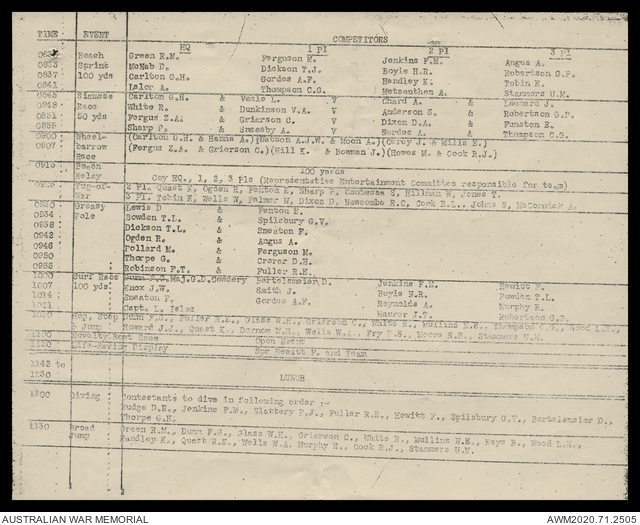 TIME EVENT COMPETITORS
HQ 1 Pl 2 Pl 3 Pl
Beach Green R.M. Ferguson M. Jenkins F.M. Angus A.
0833 Sprint McNab D. Dickson T.J. Boyle H.R. Robertson G.P.
0837 100 yds Carlton G.H. Gordes A.F. Handley K. Tobin E.
0841 Lalor A. Thompson C.G. Metzenthen A. Stammers U.M.
0845 Siamese Carlton G.H. & Veale L. V Chard A. & Leonard J.
0848 Race White R. & Dunkinson V.A. V Anderson S. & Robertson G.P.
0851 50 yds Fergus Z.A. & Grierson C. V Dixon D.A. & Funston E.
0855 Sharp F. & Smeesby A. V Hordes A. & Thompson C.G.
0900 Wheel- (Carlton G.H & Hanns A.)(Watson A.J.W & Moon A.)(Curey J & Mills H.)
0907 barrow (Fergus Z.A & Grierson C.)(Hill K & Bowman J.)(Howes M & Cook R.J.)
Race
0915 Beach 100 yards
Relay Coy HQ., 1, 2, 3 Pls (Representative Entertainment Committee responsible for team)
Tug-of- 2 Pl. Quast K, Ogden R, Fenton E, Sharp F, Contesse S, Hillman W, Jones T.
War 3 Pl. Tobin E, Wells W, Palmer W, Dixon D, Newcombe R.C, Cook R.L., Johns S, McCormick A.
0930 Greasy Lewis D & Fenton E.
0934 Pole Bowden T.L. & Spilsbury G.V.
0938 Dickson T.L. & Smeaton F.
0942 Ogden R. & Angus A.
0946 Pollard M. & Ferguson M.
0950 Thorpe G. & Crater D.H.
0955 Robinson F.T. & Fuller R.E.
Surf Race Maj.G.D. Cowdery Bertelsmeier D. Jenkins F.M. Hewitt F.
1007 100 yds Knox J.W. Smith J. Boyle N.R. Bowden T.L.
1014 Smeaton F. Gordes A.F. Reynolds A. Murphy R.
1021 Capt. L. Isles Maurer J.T. Robertson G.P.
Hop, Step Dunn F.G., Fuller R.E., Glass W.H., Grierson C., White R., Mullins E.E., Thompson C.G., Wood L.H.,
& Jump Howard J.J., Quast K., Dornom W.H., Wells W.A., Fry E.S., Moore N.D., Stammers U.M.
1100 Novelty Boat Race Open Event
Life-Saving Display Spr Hewitt F. and Team
1145 to
1230 LUNCH
1300 Diving Contestants to dive in following order :-
Budge D.N., Jenkins F.M., Slattery P.J., Fuller R.E., Hewitt F., Spilsbury G.V., Bertelsmeier D.,
Thorpe G.N.
1330 Broad Green R.M., Dunn F.G., Glass W.H., Grierson C., White R., Mullins W.E., Keys B., Wood L.H.,
Jump Handley K., Quast R.N., Wells W.A. Murphy R., Cook R.J., Stammers U.M.
AUSTRALIAN WAR MEMORIAL AWM2020.71.2505